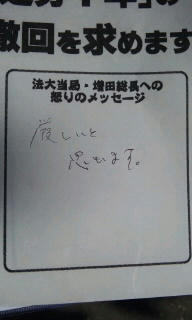 処分十年」の
撤回を求めます
法大当局・増田総長への
怒りのメッセージ
厳しいと
思います。